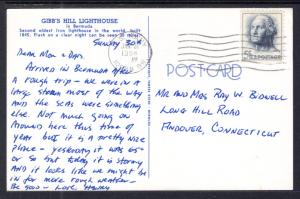 GIBB'S HILL LIGHTHOUSE
in Bermuda
Second oldest iron lighthouse in the world, built
1845. Flash on a clear night can be seen 30 miles.
Sunday 30th
Dear Mom & Dad,
Arrived in Bermuda after
a rough trip - we were in a
large storm most of the way
and the seas were something
else. Not much going on
around here this time of
year but it is a pretty nice
place - yesterday it was 65-
80 so but today it is stormy
and it looks like we might be
in for more rough weather.
Be good - Love Henry
POSTCARD
Mr and Mrs Ray W. Bidwell
Long Hill Road
Andover, Connecticut